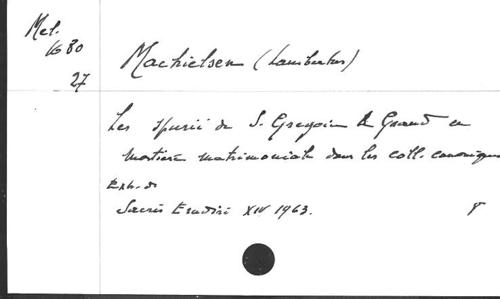 Mel.
1680
27
Machielsen (Lambertus)
Les spurii de S. Gregoire le Grand en
matière matrimoniale dans les coll. canoniques
Extr. de
Sacris Erudiri XIV 1963.